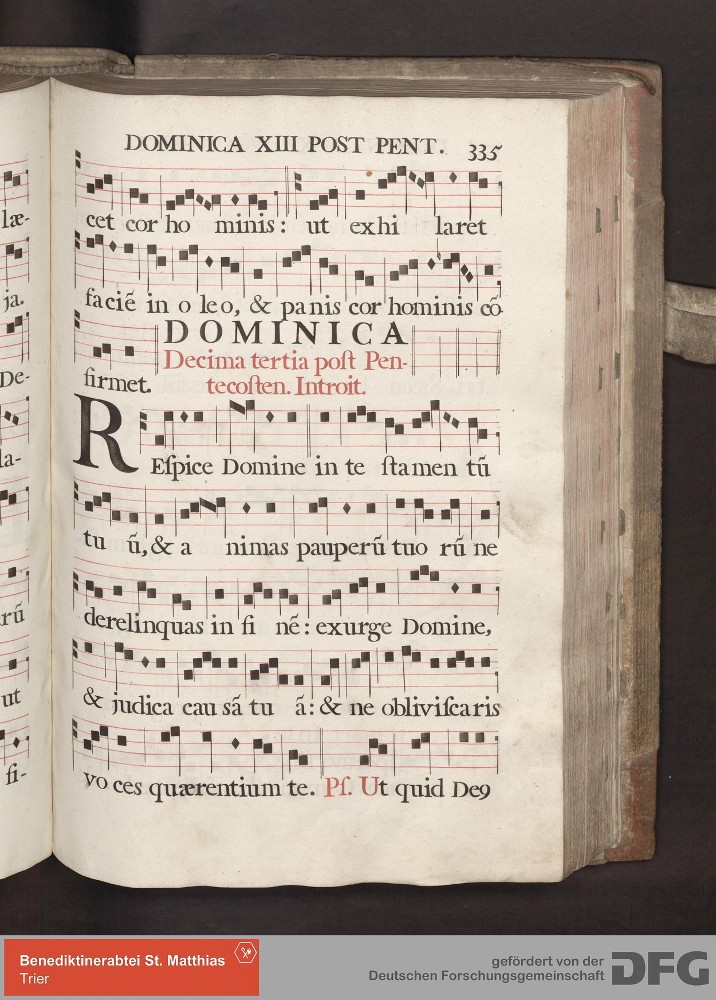 DOMINICA XIII POST PENT. 335
cet cor ho minis: ut exhi laret
faciē in o leo, & panis cor hominis cō-
DOMINICA
Decima tertia poſt Pen-
firmet. tecoſten. Introit.
REſpice Domine in te ſtamen tū
tu ū, & a nimas pauperū tuo rū ne
derelinquas in fi nē: exurge Domine,
& judica cau sā tu ā: & ne obliviſcaris
vo ces quærentium te. Pſ. Ut quid De9
læ-
ja.
De-
la-
rū
ut
fi-
Benediktinerabtei St. Matthias
Trier
gefördert von der
Deutschen Forschungsgemeinschaft
DFG